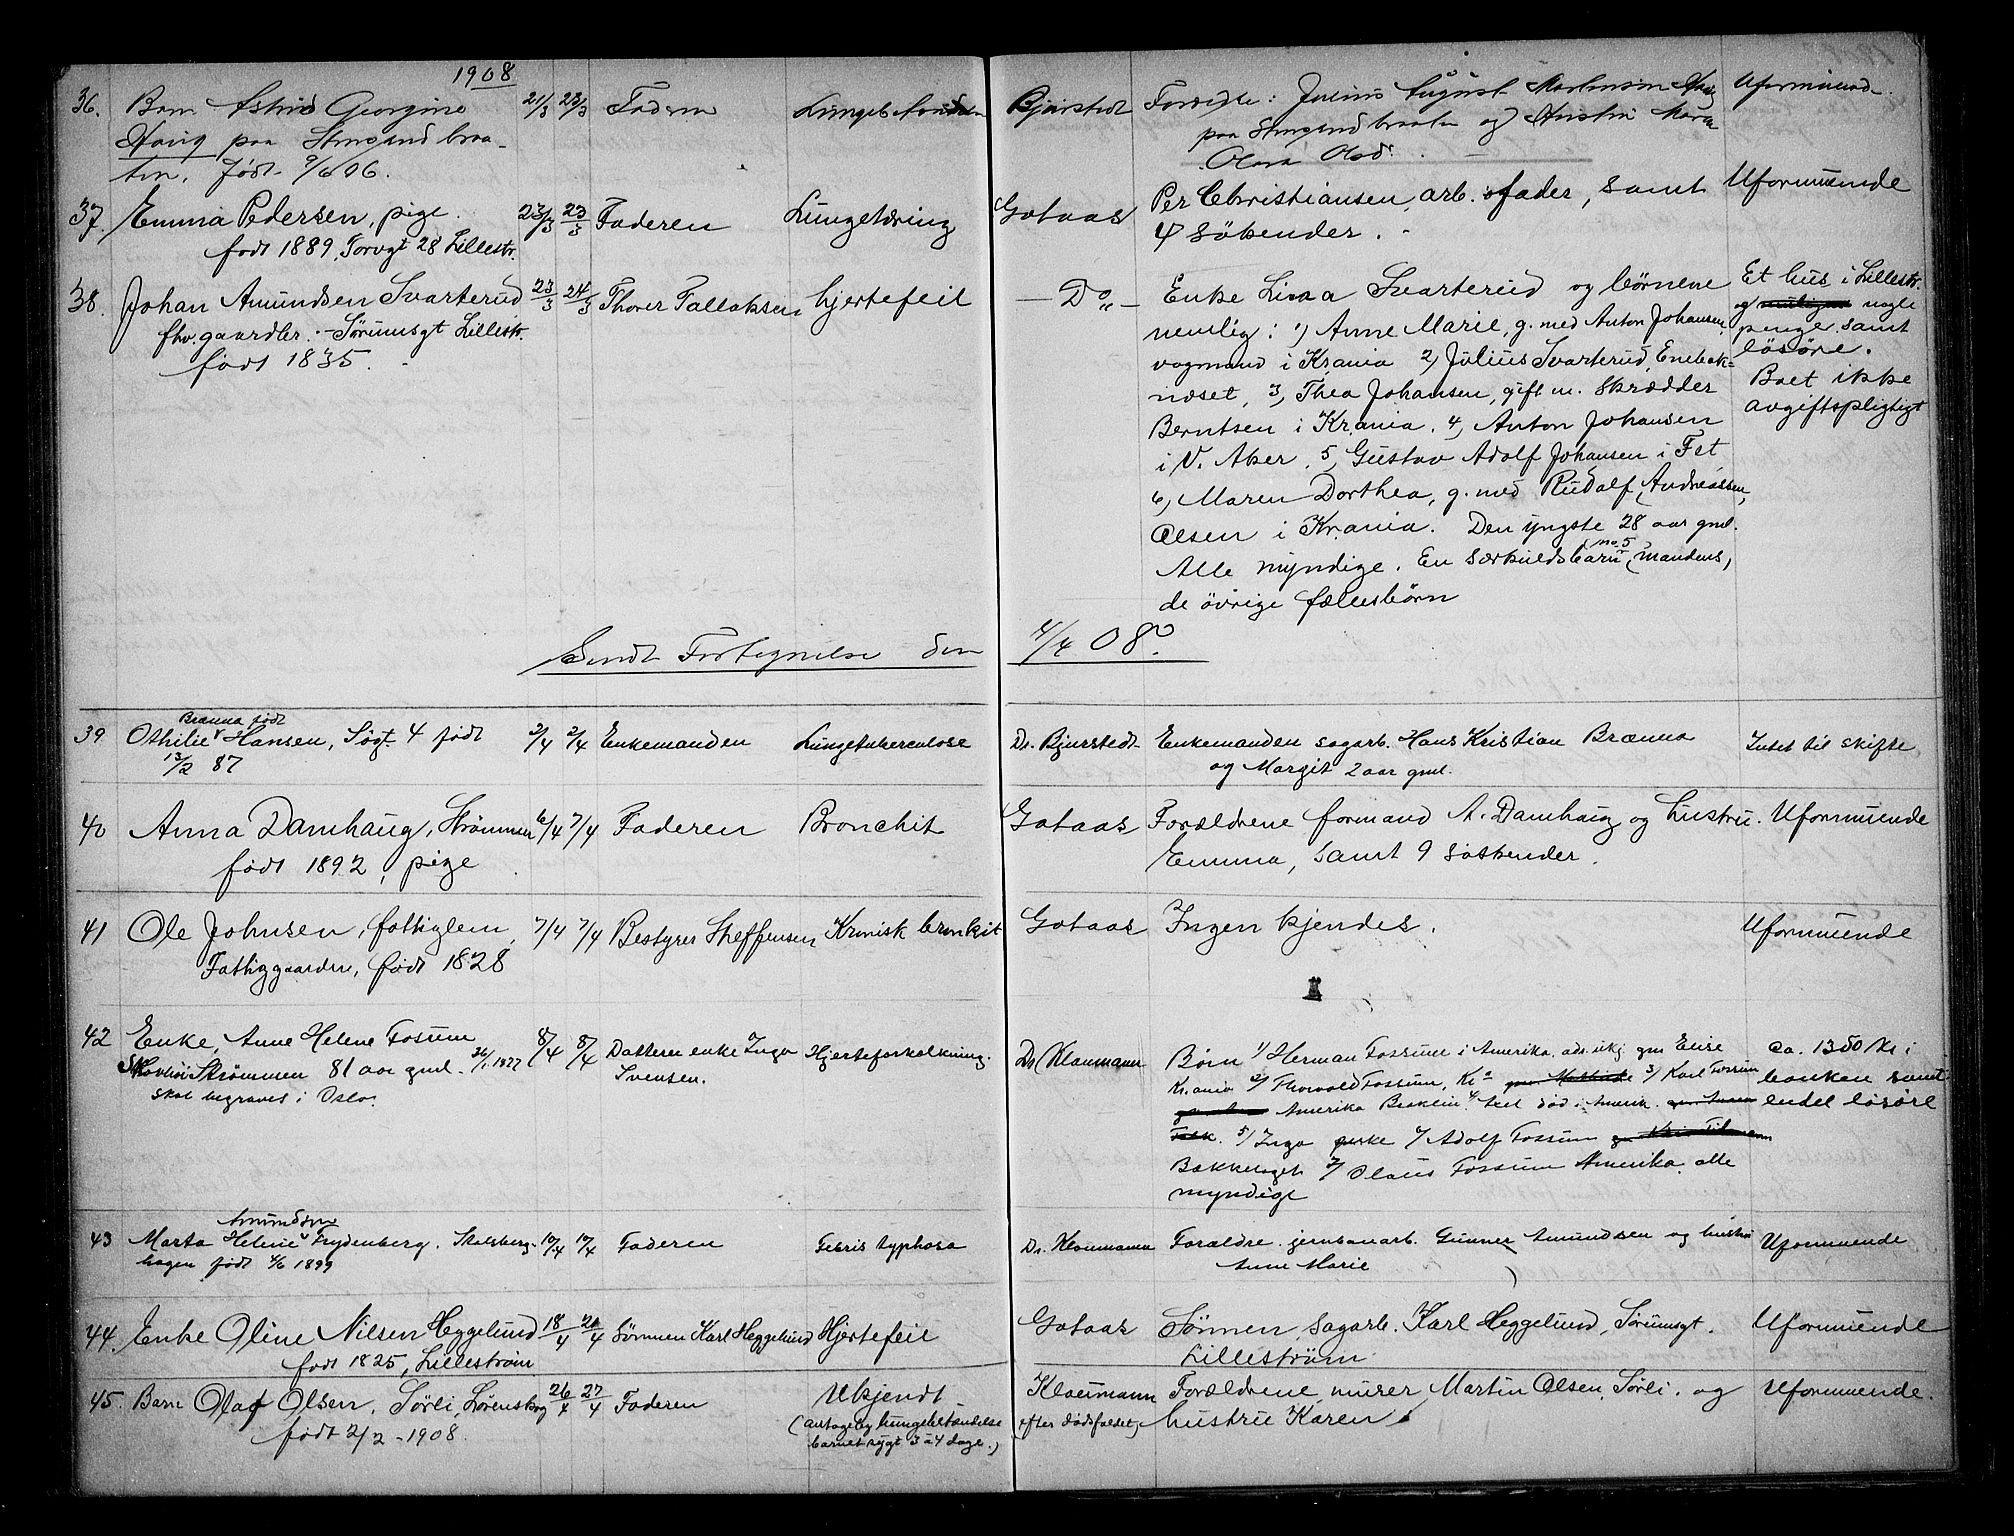 1908
36. Barn Astrid Georgine 21/3 23/3 Faderen Lungebetændelse Bjurstedt Forældre: Julius August Martinsen Haug Uformuende
Haug paa Strøsand braa-
ten. Født 9/6 06.
paa Strøsandbraaten og Hustru Maren
Olava Olsd.
37. Emma Pedersen, pige. 23/3 23/3 Faderen Lungetæring Gotaas Per Christiansen, arb. fader, samt Uformuende
født 1889, Torvgt 28 Lillestr. 4 söskender.
38. Johan Amundsen Svarterud 23/3 24/3 Thorer Tallaksen hjertefeil — Do — Enke Lina Svarterud og börnene Et hus i Lillestr.
fhv. gaardbr. - Sørumsgt Lillestr. nemlig: 1) Anne Marie, g. med Anton Johansen og nogle
født 1835. vognmand i Krania 2) Julius Svarterud, Enebak- penge samt
næset, 3, Thea Johansen, gift m. Skrædder løsøre.
Berntsen i Krania. 4, Anton Johansen Boet ikke
i V. Aker. 5, Gustav Adolf Johansen i Fet avgiftspligtigt
6, Maren Dorthea, g. med Rudolf Andreassen,
Olsen i Krania. Den yngste 28 aar gml.
Alle myndige. En særkuldsbarn (no 5 mandens,
de övrige fællesbörn
Sendt Fortegnelse den 4/4 08.
39 Othilie Brænna født Hansen, Søgt. 4 født 2/4 2/4 Enkemanden Lungetuberculose Dr. Bjurstedt Enkemanden sagarb. Hans Kristian Brænna Intet til skifte
13/2 87 og Margit 2 aar gml.
40 Anna Damhaug, Strømmen 6/4 7/4 Faderen Bronchit Gotaas Forældrene formand A. Damhaug og hustru Uformuende
født 1892, pige Emma, samt 9 søskender.
41 Ole Johnsen, fattiglem 7/4 7/4 Bestyrer Steffensen Kronisk bronkit Gotaas Ingen kjendes. Uformuende
Fattiggaarden, født 1828
42 Enke, Anne Helene Fossum 8/4 8/4 Datteren enke Inga Hjerteforkalkning. Dr Klaumann Børn 1) Herman Fossum i Amerika, adr. ukj. gm Enise ca. 1350 Kr i
Skovhøi Strømmen 81 aar gml. 26/1 1827 Svensen. Kr.ania 2) Thorvald Fossum, Kr.a 3) Karl Fossum banken samt
skal begraves i Oslo. Amerika 4) død i Amerik. endel løsøre
5) Inga enke 6) Adolf Fossum
Bækkelaget 7) Olaus Fossum Amerika. alle
myndige
43 Marta Helene Amundsen Frydenberg. Skolsberg- 10/4 10/4 Faderen Febris typhosa Dr. Klaumann Forældre. jernbanarb. Gunner Amundsen og hustru Uformuende
hagen født 4/6 1899 Anne Marie
44. Enke Oline Nilsen Heggelund 18/4 20/4 Sønnen Karl Heggelund Hjertefeil Gotaas Sønnen, sagarb. Karl Heggelund, Sørumsgt. Uformuende
født 1825, Lillestrøm Lillestrøm
45. Barn Olaf Olsen, Sørli, Lørenskog 26/4 27/4 Faderen Ukjendt Klaumann Forældrene murer Martin Olsen, Sørli. og Uformuende.
født 2/2 - 1908. (antagelig lungebetændelse (efter dødsfaldet) hustru Karen
barnet sygt 3 à 4 dage.)